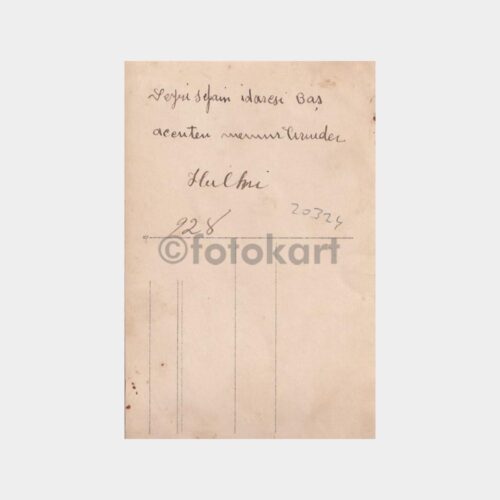 Seyri sefain idaresi Baş
acenten memurlarından
Hulki
928
20324
©fotokart